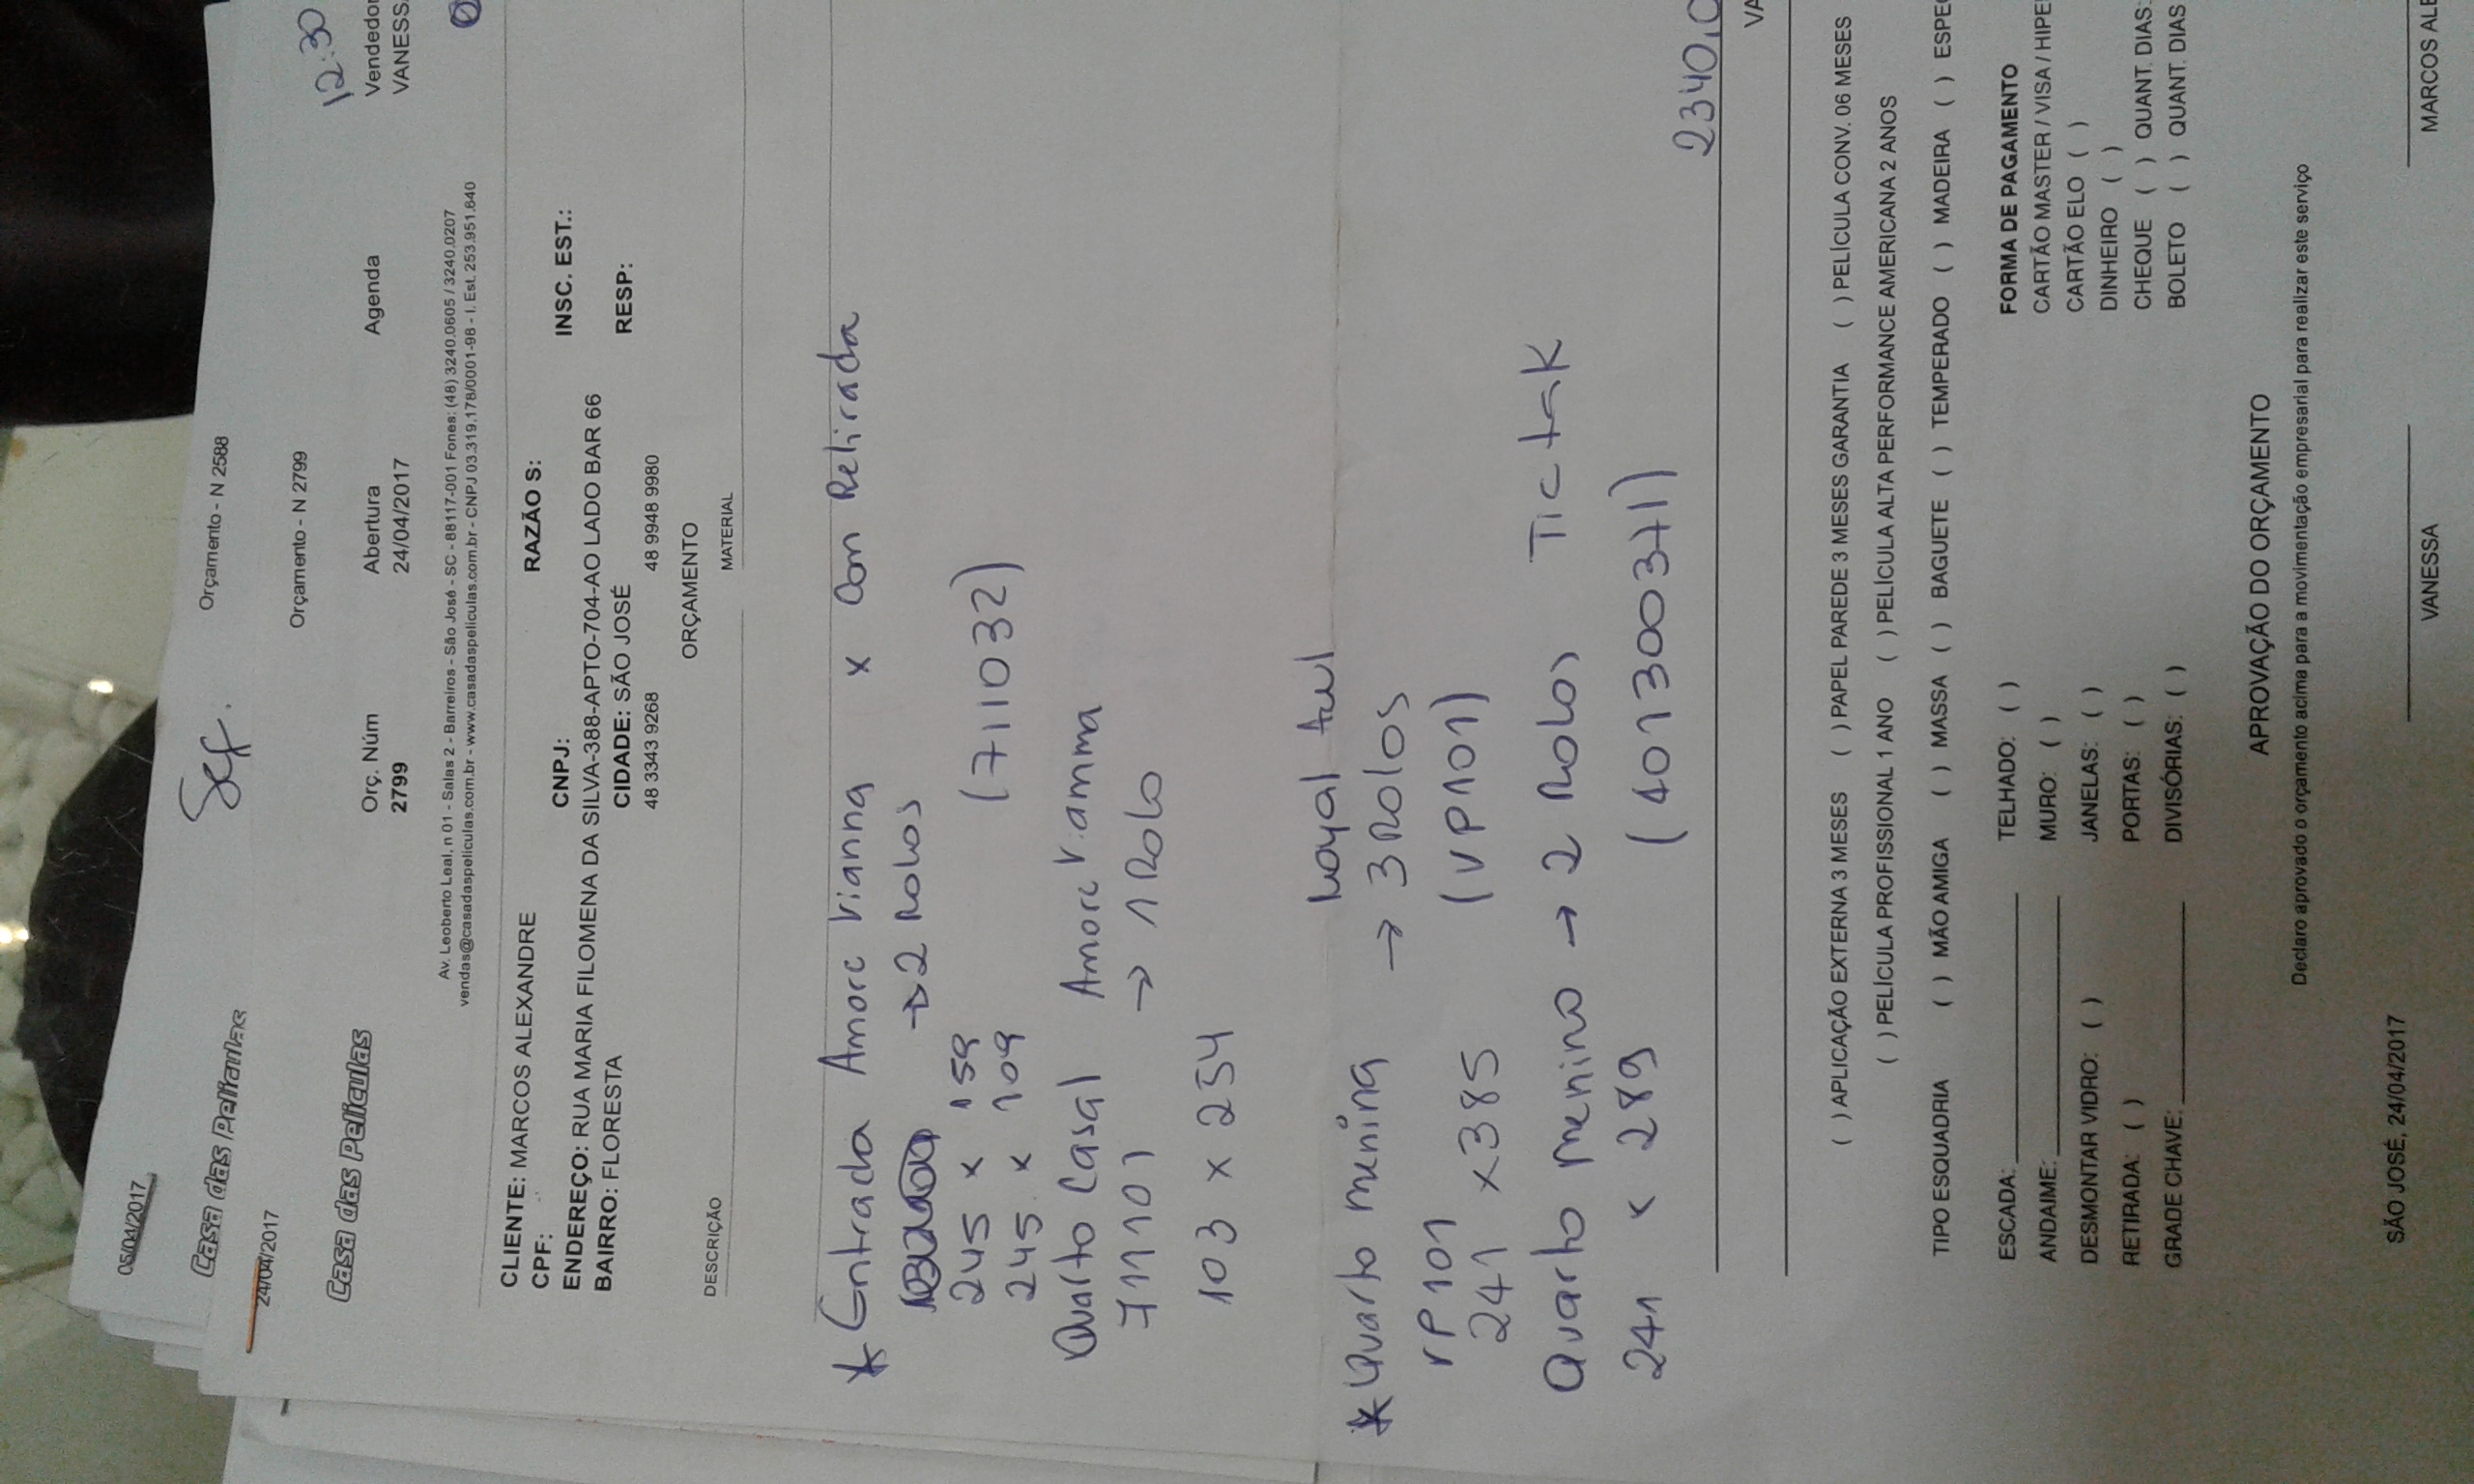 05/04/2017
Casa das Películas
Orçamento - N 2588
24/04/2017
Orçamento - N 2799
12:30
Casa das Películas
Orç. Núm
2799
Abertura
24/04/2017
Agenda
Vendedor
VANESSA
Av. Leoberto Leal, n 01 - Salas 2 - Barreiros - São José - SC - 88117-001 Fones: (48) 3240.0605 / 3240.0207
vendas@casadaspeliculas.com.br - www.casadaspeliculas.com.br - CNPJ 03.319.178/0001-98 - I. Est. 253.951.640
CLIENTE: MARCOS ALEXANDRE RAZÃO S:
CPF: CNPJ: INSC. EST.:
ENDEREÇO: RUA MARIA FILOMENA DA SILVA-388-APTO-704-AO LADO BAR 66
BAIRRO: FLORESTA CIDADE: SÃO JOSÉ RESP:
48 3343 9268 48 9948 9980
ORÇAMENTO
DESCRIÇÃO MATERIAL
* Entrada Amore Vianna x Com Retirada
→ 2 Rolos
245 x 159
245 x 109 (711032)
Quarto Casal Amore Vianna
711101 → 1 Rolo
103 x 254
Loyal
* Quarto menina → 3 Rolos
VP101 (VP1101)
241 x 385
Quarto menino → 2 Rolos Tictak
241 x 289 (401300371)
2340,0
VA
( ) APLICAÇÃO EXTERNA 3 MESES ( ) PAPEL PAREDE 3 MESES GARANTIA ( ) PELÍCULA CONV. 06 MESES
( ) PELÍCULA PROFISSIONAL 1 ANO ( ) PELÍCULA ALTA PERFORMANCE AMERICANA 2 ANOS
TIPO ESQUADRIA ( ) MÃO AMIGA ( ) MASSA ( ) BAGUETE ( ) TEMPERADO ( ) MADEIRA ( ) ESPE
ESCADA: TELHADO: ( ) FORMA DE PAGAMENTO
ANDAIME: MURO: ( ) CARTÃO MASTER / VISA / HIPE
DESMONTAR VIDRO: ( ) JANELAS: ( ) CARTÃO ELO ( )
RETIRADA: ( ) PORTAS: ( ) DINHEIRO ( )
GRADE CHAVE: DIVISÓRIAS: ( ) CHEQUE ( ) QUANT. DIAS:
BOLETO ( ) QUANT. DIAS
APROVAÇÃO DO ORÇAMENTO
Declaro aprovado o orçamento acima para a movimentação empresarial para realizar este serviço
SÃO JOSÉ, 24/04/2017
VANESSA MARCOS ALE